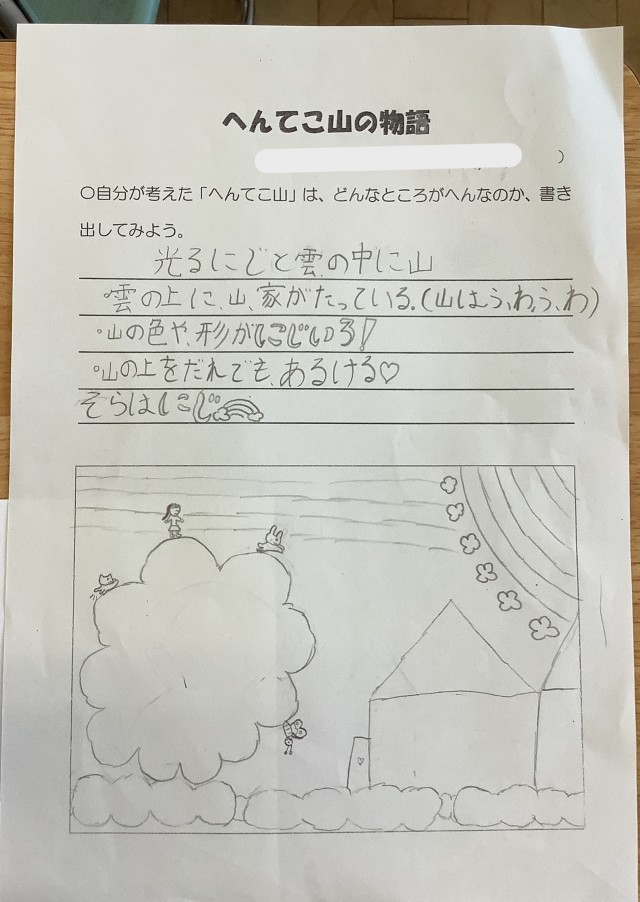 へんてこ山の物語
)
〇自分が考えた「へんてこ山」は、どんなところがへんなのか、書き
出してみよう。
光るにじと雲の中に山
・雲の上に、山、家がたっている。(山はふ、わ、ふ、わ)
・山の色や、形がにじいろ!
・山の上をだれでも、あるける♡
そらはにじ